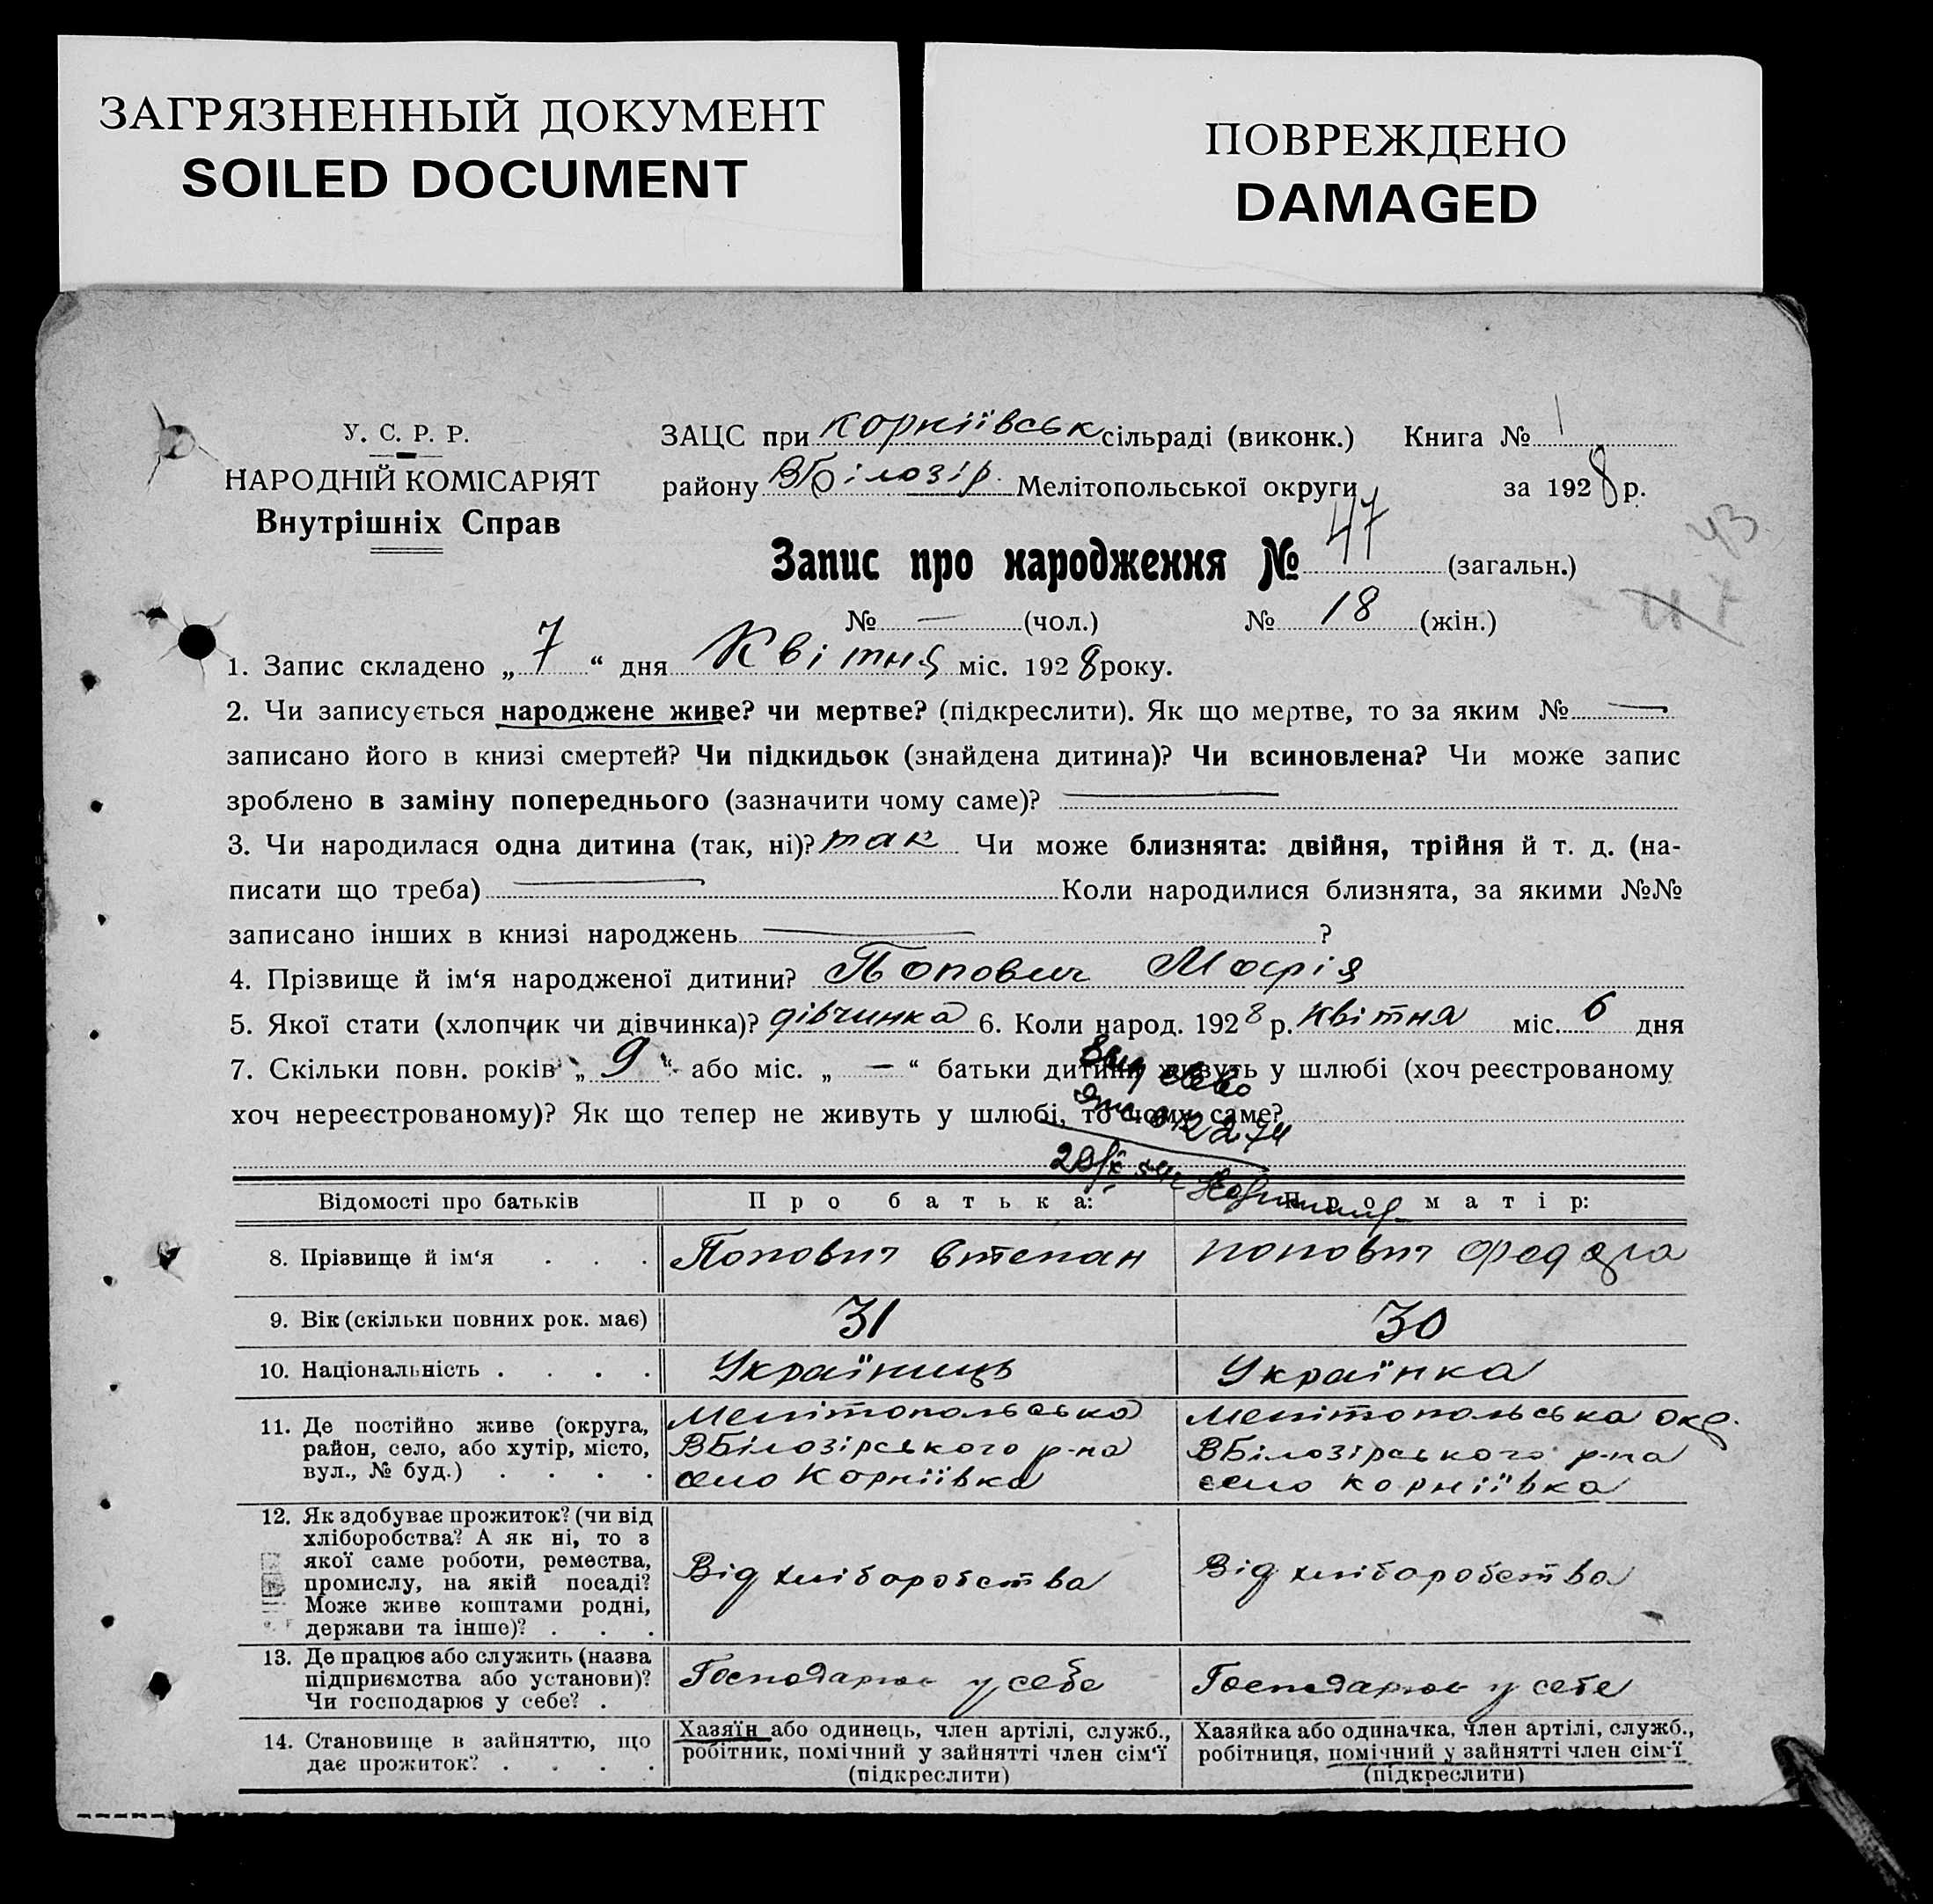 ЗАГРЯЗНЕННЫЙ ДОКУМЕНТ
SOILED DOCUMENT
ПОВРЕЖДЕНО
DAMAGED
У. С. Р. Р.
НАРОДНІЙ КОМІСАРІЯТ
Внутрішніх Справ
ЗАЦС при Корніївськ сільраді (виконк.) Книга № 1
району ВБілозір. Мелітопольської округи за 1928 р.
43
Запис про народження № 47 (загальн.)
47
№ — (чол.) № 18 (жін.)
1. Запис складено „ 7 “ дня Квітня міс. 1928 року.
2. Чи записується народжене живе? чи мертве? (підкреслити). Як що мертве, то за яким № —
записано його в книзі смертей? Чи підкидьок (знайдена дитина)? Чи всиновлена? Чи може запис
зроблено в заміну попереднього (зазначити чому саме)? —
3. Чи народилася одна дитина (так, ні)? так Чи може близнята: двійня, трійня й т. д. (на-
писати що треба) — Коли народилися близнята, за якими №№
записано інших в книзі народжень — ?
4. Прізвище й ім‘я народженої дитини? Попович Марія
5. Якої стати (хлопчик чи дівчинка)? дівчинка 6. Коли народ. 1928 р. Квітня міс. 6 дня
7. Скільки повн. років „ 9 “ або міс. „ — “ батьки дитини живуть у шлюбі (хоч реєстрованому
хоч нереєстрованому)? Як що тепер не живуть у шлюбі, то чому саме?
Відомості про батьків Про батька: Про матір:
8. Прізвище й ім‘я . . . Попович Степан Попович Федора
9. Вік (скільки повних рок. має) 31 30
10. Національність . . . . Україниць Українка
11. Де постійно живе (округа, район, село, або хутір, місто, вул., № буд.) . . . .
Мелітопольська
ВБілозірського р-на
село Корніївка
Мелітопольська окр.
ВБілозірського р-на
село Корніївка
12. Як здобуває прожиток? (чи від
хліборобства? А як ні, то з
якої саме роботи, ремества,
промислу, на якій посаді?
Може живе коштами родні,
держави та інше)? . . .
Від хліборобства Від хліборобства
13. Де працює або служить (назва
підприємства або установи)?
Чи господарює у себе? .
Господарює у себе Господарює у себе
14. Становище в зайняттю, що
дає прожиток? . . . .
Хазяїн або одинець, член артілі, служб.,
робітник, помічний у зайнятті член сім‘ї
(підкреслити)
Хазяйка або одиначка, член артілі, служб.,
робітниця, помічний у зайнятті член сім‘ї
(підкреслити)